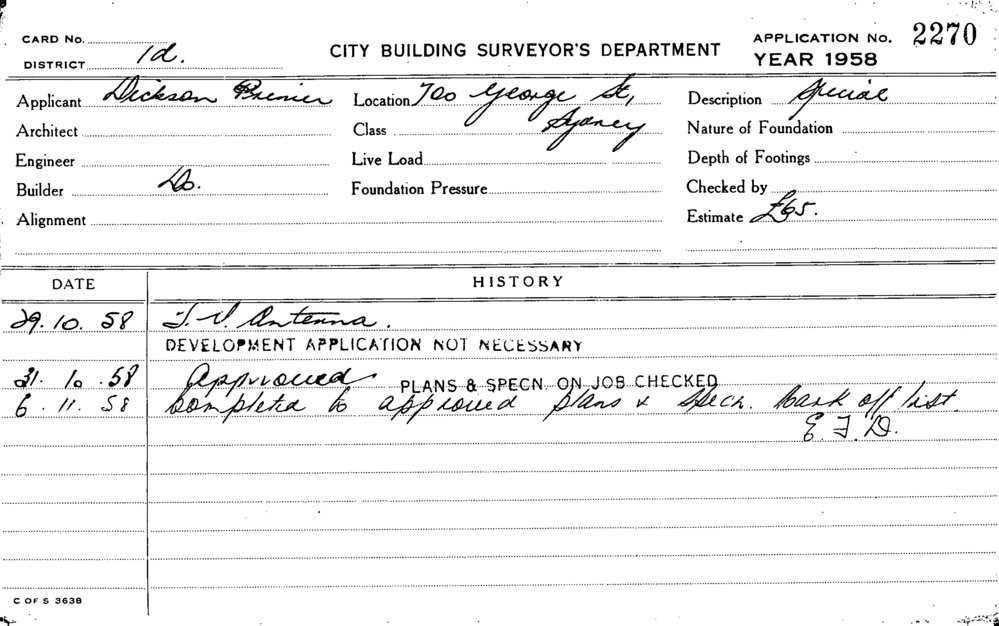 CARD No.
DISTRICT 1d.
CITY BUILDING SURVEYOR'S DEPARTMENT
APPLICATION No. 2270
YEAR 1958
Applicant Dickson Primer Location 700 George St, Description Special
Architect Class Sydney Nature of Foundation
Engineer Live Load Depth of Footings
Builder Do. Foundation Pressure Checked by
Alignment Estimate £65.
DATE HISTORY
29.10.58 T.V. Antenna.
DEVELOPMENT APPLICATION NOT NECESSARY
31.10.58 Approved PLANS & SPECN. ON JOB CHECKED
6.11.58 Completed to approved plans & specn. Mark off list
E.J.D.
C OF S 3638